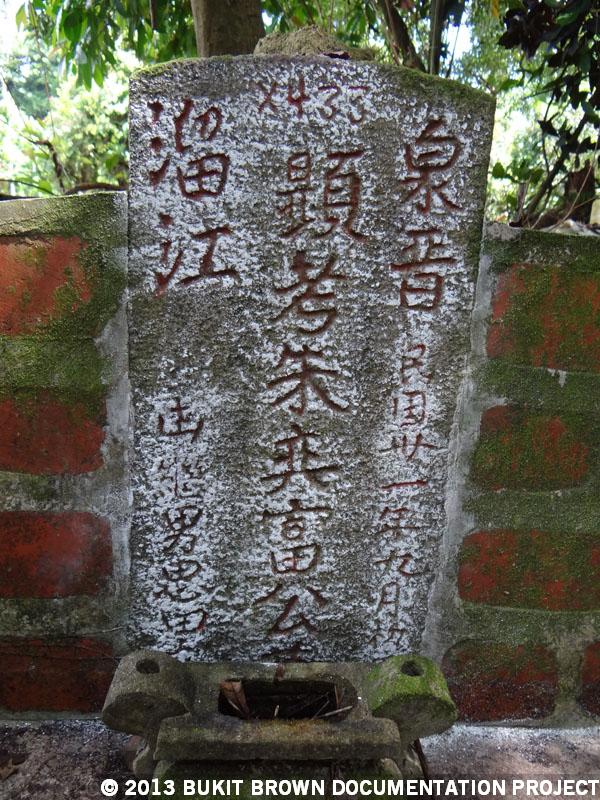 X433
泉晋
民国廿一年九月
顯考朱奕富公
溜江
出繼男
© 2013 BUKIT BROWN DOCUMENTATION PROJECT